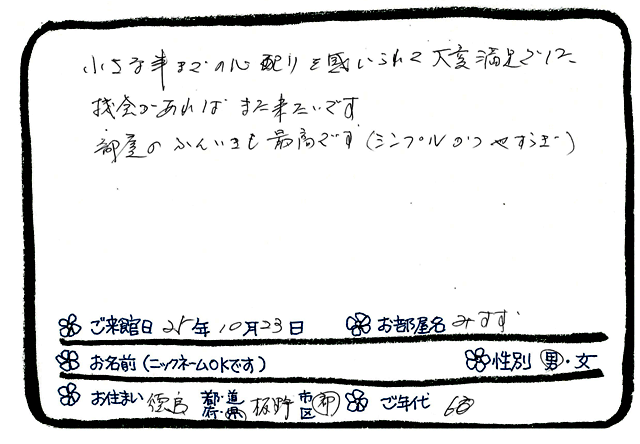 小さな事までの心配りを感じられて大変満足でした
機会があればまた来たいです
部屋のふんいきも最高です(シンプルかつやすらぎ)
ご来館日 25年10月23日 お部屋名 みすず
お名前(ニックネームOKです) 性別 男・女
お住まい 徳島 都・道・府・県 板野 市区郡 ご年代 60